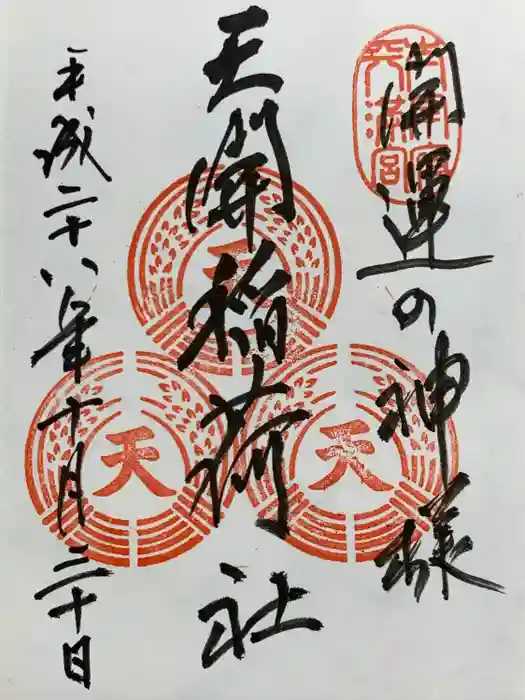 開運の神様
天開稲荷社
平成二十八年十月二十日
天
天
天